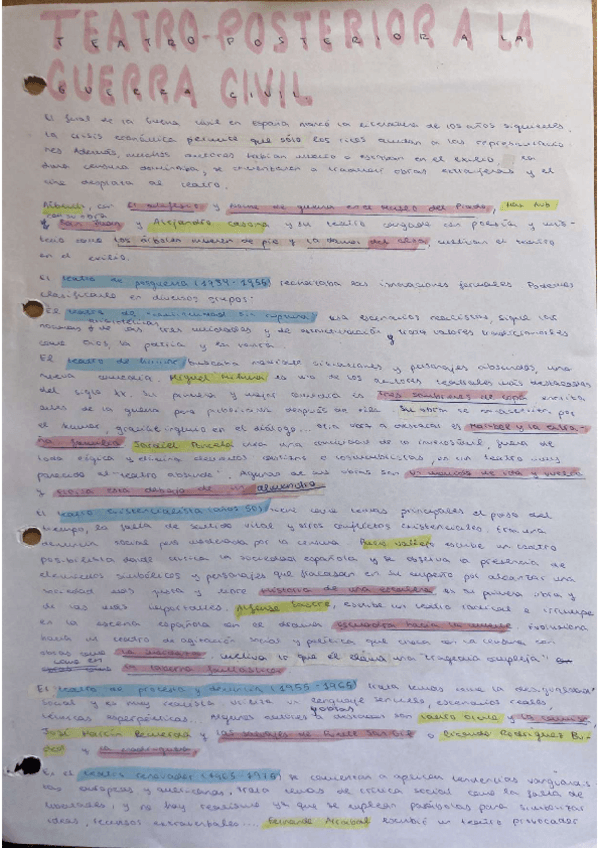 TEATRO POSTERIOR A LA
GUERRA CIVIL
TEATRO POSTERIOR A LA
GUERRA CIVIL
El final de la Guerra civil en España marcó la literatura de los años siguientes.
La crisis económica permite que sólo los ricos acudan a las representacio
nes. Además, muchos autores habían muerto o estaban en el exilio
dura censura dominaba, se comenzaron a traducir obras extranjeras y el
cine desplaza al teatro.
Alberti, con El adefesio y Noche de guerra en el museo del Prado, Max Aub
y San Juan y Alejandro Casona y su teatro cargado con poesía y mis-
terio como Los árboles mueren de pie y La dama del alba, el teatro
en el exilio.
El teatro de posguerra (1939-1955) rechazaba las innovaciones formales. Podemos
clasificarlo en diversos grupos:
El teatro de usa escenarios realistas, sigue las
normas de las tres unidades y de y trata valores tradicionales
como Dios, la patria y
El teatro de humor buscaba situaciones y personajes absurdos, una
nueva comedia. Miguel Mihura es uno de los autores teatrales más destacados
del siglo XX. Su primera y mejor comedia es Tres sombreros de copa escrita
antes de la guerra pero después de ella. Su obra se caracteriza por
el humor, gran ingenio en el diálogo... otra obra a destacar es Maribel y la extra-
ña familia. Jardiel Poncela crea una comicidad de lo inverosímil, fuera de
toda lógica y elimina elementos o costumbristas, en un teatro muy
parecido al "teatro absurdo". Algunas de sus obras son Un marido de ida y vuelta
y Eloísa está debajo de un almendro
El teatro existencialista (años 50) tiene como temas principales el paso del
tiempo, la falta de sentido vital y otros conflictos existenciales. Era una
denuncia social pero moderada por la censura. Buero Vallejo escribe un teatro
posibilista donde la sociedad española y se observa la presencia de
elementos simbólicos y personajes que fracasan en su empeño por alcanzar una
sociedad más justa y libre. Historia de una escalera es su primera obra y
de las más importantes. Alfonso Sastre, escribe un teatro radical e irrumpe
en la escena española con el drama Escuadra hacia la muerte. Evoluciona
hacia un teatro de agitación social y política que choca con la censura con
obras como La mordaza. cultiva lo que él llama una "tragedia compleja"
como en La taberna fantástica
El teatro de protesta y denuncia (1955-1965) trata temas como la desigualdad
social y es muy realista. Utiliza un lenguaje sencillo, escenarios reales,
técnicas esperpénticas... Algunos autores y obras a destacar son Lauro Olmo y La camisa,
José Martín Recuerda y Las salvajes de Puente San Gil o Ricardo Rodríguez Bu-
ded y La madriguera
En el teatro renovador (1965-1975) se comienzan a apreciar tendencias vanguardis-
tas europeas y americanas, trata temas de crítica social como la falta de
libertades, y no hay realismo ya que se emplean parábolas para simbolizar
ideas, recursos extraverbales.... Fernando Arrabal escribió un teatro provocador